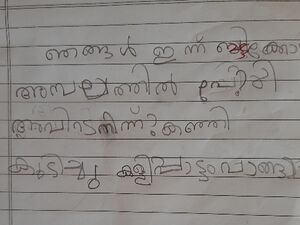 ഞങ്ങൾ ഇന്ന്
അമ്പലത്തിൽ പോയി
അവിടെനിന്ന് കഞ്ഞി
കുടിച്ചു കളിപ്പാട്ടം വാങ്ങി